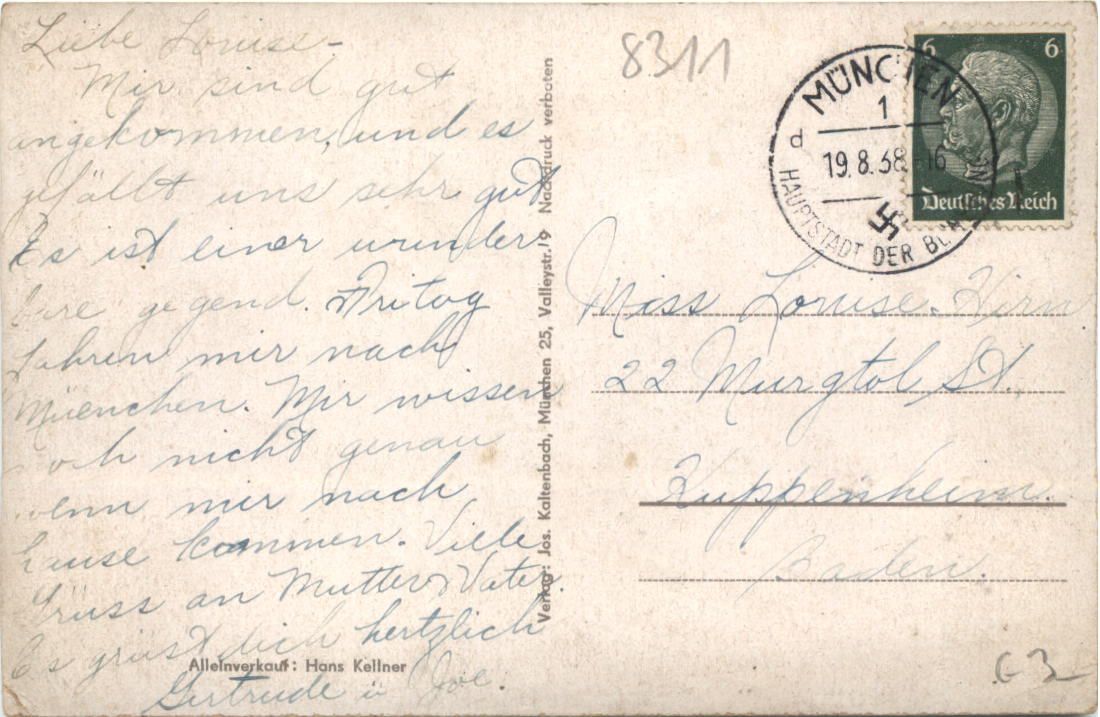 Liebe Louise -
Mir sind gut
angekommen, und es
gefällt uns sehr gut
Es ist einer wunder
bare gegend. Fritag
fahren mir nach
Müenchen. Mir wissen
noch nicht genau
wenn mir nach
hause kommen. Viele
Grüss an Mutter & Vater.
Es grüst dich hertzlich
Gertrude ü Joe.
Alleinverkauf: Hans Kellner
Verlag: Jos. Kaltenbach, München 25, Valleystr. 19 Nachdruck verboten
8311
MÜNCHEN
1
d
19.8.38.-16
HAUPTSTADT DER
6 6
Deutsches Reich
Miss Louise Hirn
22 Murgtol St.,
Kuppenheim.
Baden.
G3